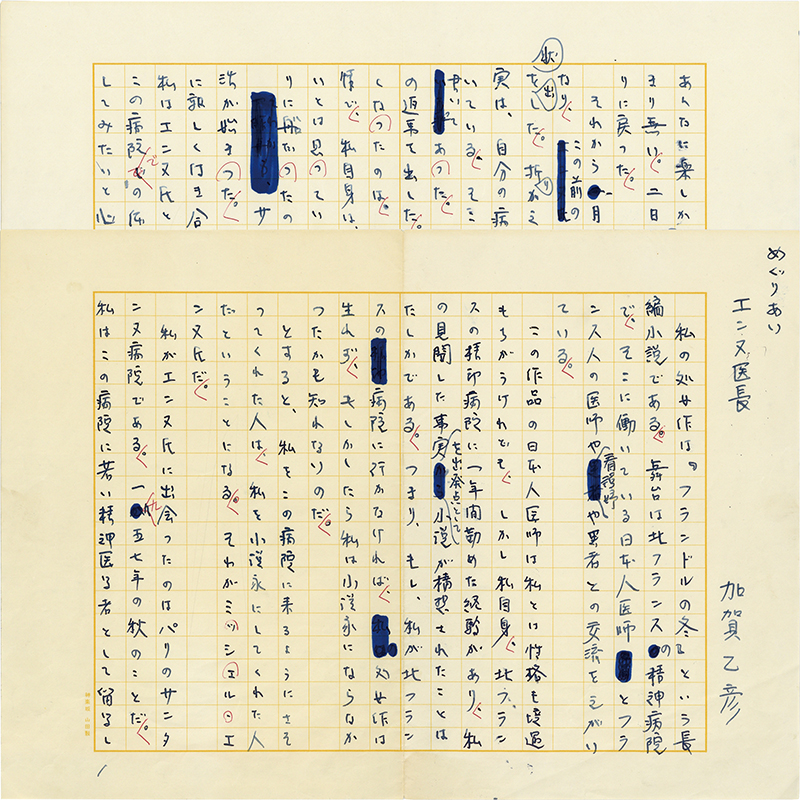 あんなに楽しか
まり無い。二日
りに戻った。
それから一月
この前の
なり、
状
出
をした。折り
実は、自分の病
いている。そこ
書いてあった。
の返事を出した。
くなったのは、
情で、私自身は、
いとは思ってい
サ
が始まった。
に親しく
私はエンヌ氏と
この病院での
してみたいと心
めぐりあい
エンヌ医長
加賀乙彦
私の処女作は『フランドルの冬』という長
編小説である。舞台は北フランスの精神病院
で、そこに働いている日本人医師とフラ
ンス人の医師や看護婦や患者との交流をえがい
ている。
この作品の日本人医師は私とは性格も境遇
もちがうけれども、しかし私自身、北フラン
スの精神病院に一年間勤めた経験があり、私
の見聞した事実を出発点として小説が構想されたことは
たしかである。つまり、もし、私が北フラン
スの病院に行かなければ、処女作は
生れず、もしかしたら私は小説家にならなか
ったかも知れないのだ。
とすると、私をこの病院に来るようにさそ
ってくれた人は、私を小説家にしてくれた人
だということになる。それがミッシェル・エ
ンヌ氏だ。
私がエンヌ氏に出会ったのはパリのサンタ
ンヌ病院である。一九五七年の秋のことだ。
私はこの病院に若い精神医学者として留学し
1